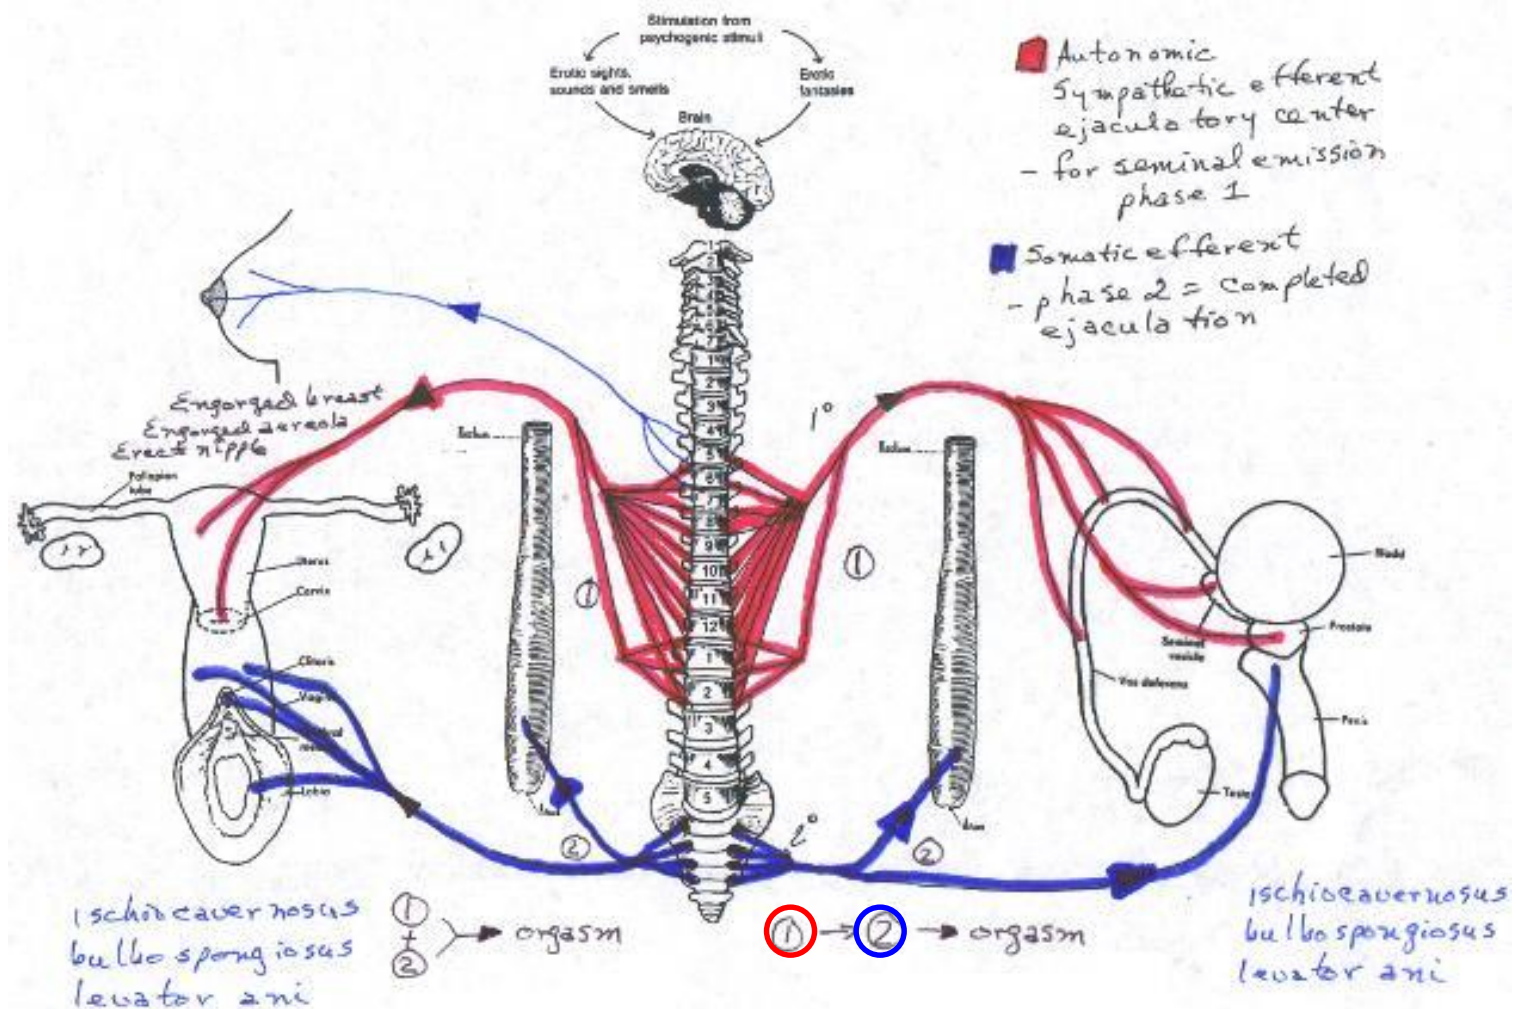 Stimulation from
psychogenic stimuli
Erotic sights,
sounds and smells
Erotic
fantasies
Brain
Autonomic
Sympathetic efferent
ejaculatory center
- for seminal emission
phase 1
Somatic efferent
- phase 2 = completed
ejaculation
Engorged breast
Engorged areola
Erect nipple
Fallopian
tube
Uterus
Cervix
Clitoris
Vagina
Labia
1
2
3
4
5
6
7
8
9
10
11
12
1
2
3
4
5
1°
2°
1
1
2
2
Seminal
vesicle
Prostate
Vas deferens
Penis
Testes
Anus
ischiocavernosus
bulbospongiosus
levator ani
1
+
2
orgasm
1 → 2 → orgasm
ischiocavernosus
bulbospongiosus
levator ani